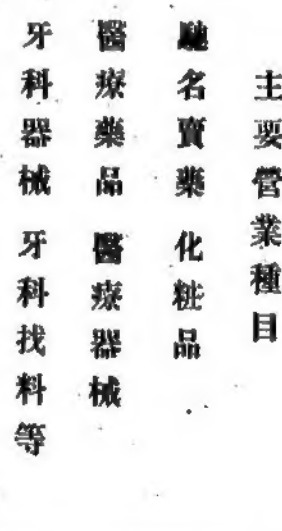 主要營業種目
馳名賣藥 化粧品
醫療藥品 醫療器械
牙科器械 牙科找料等